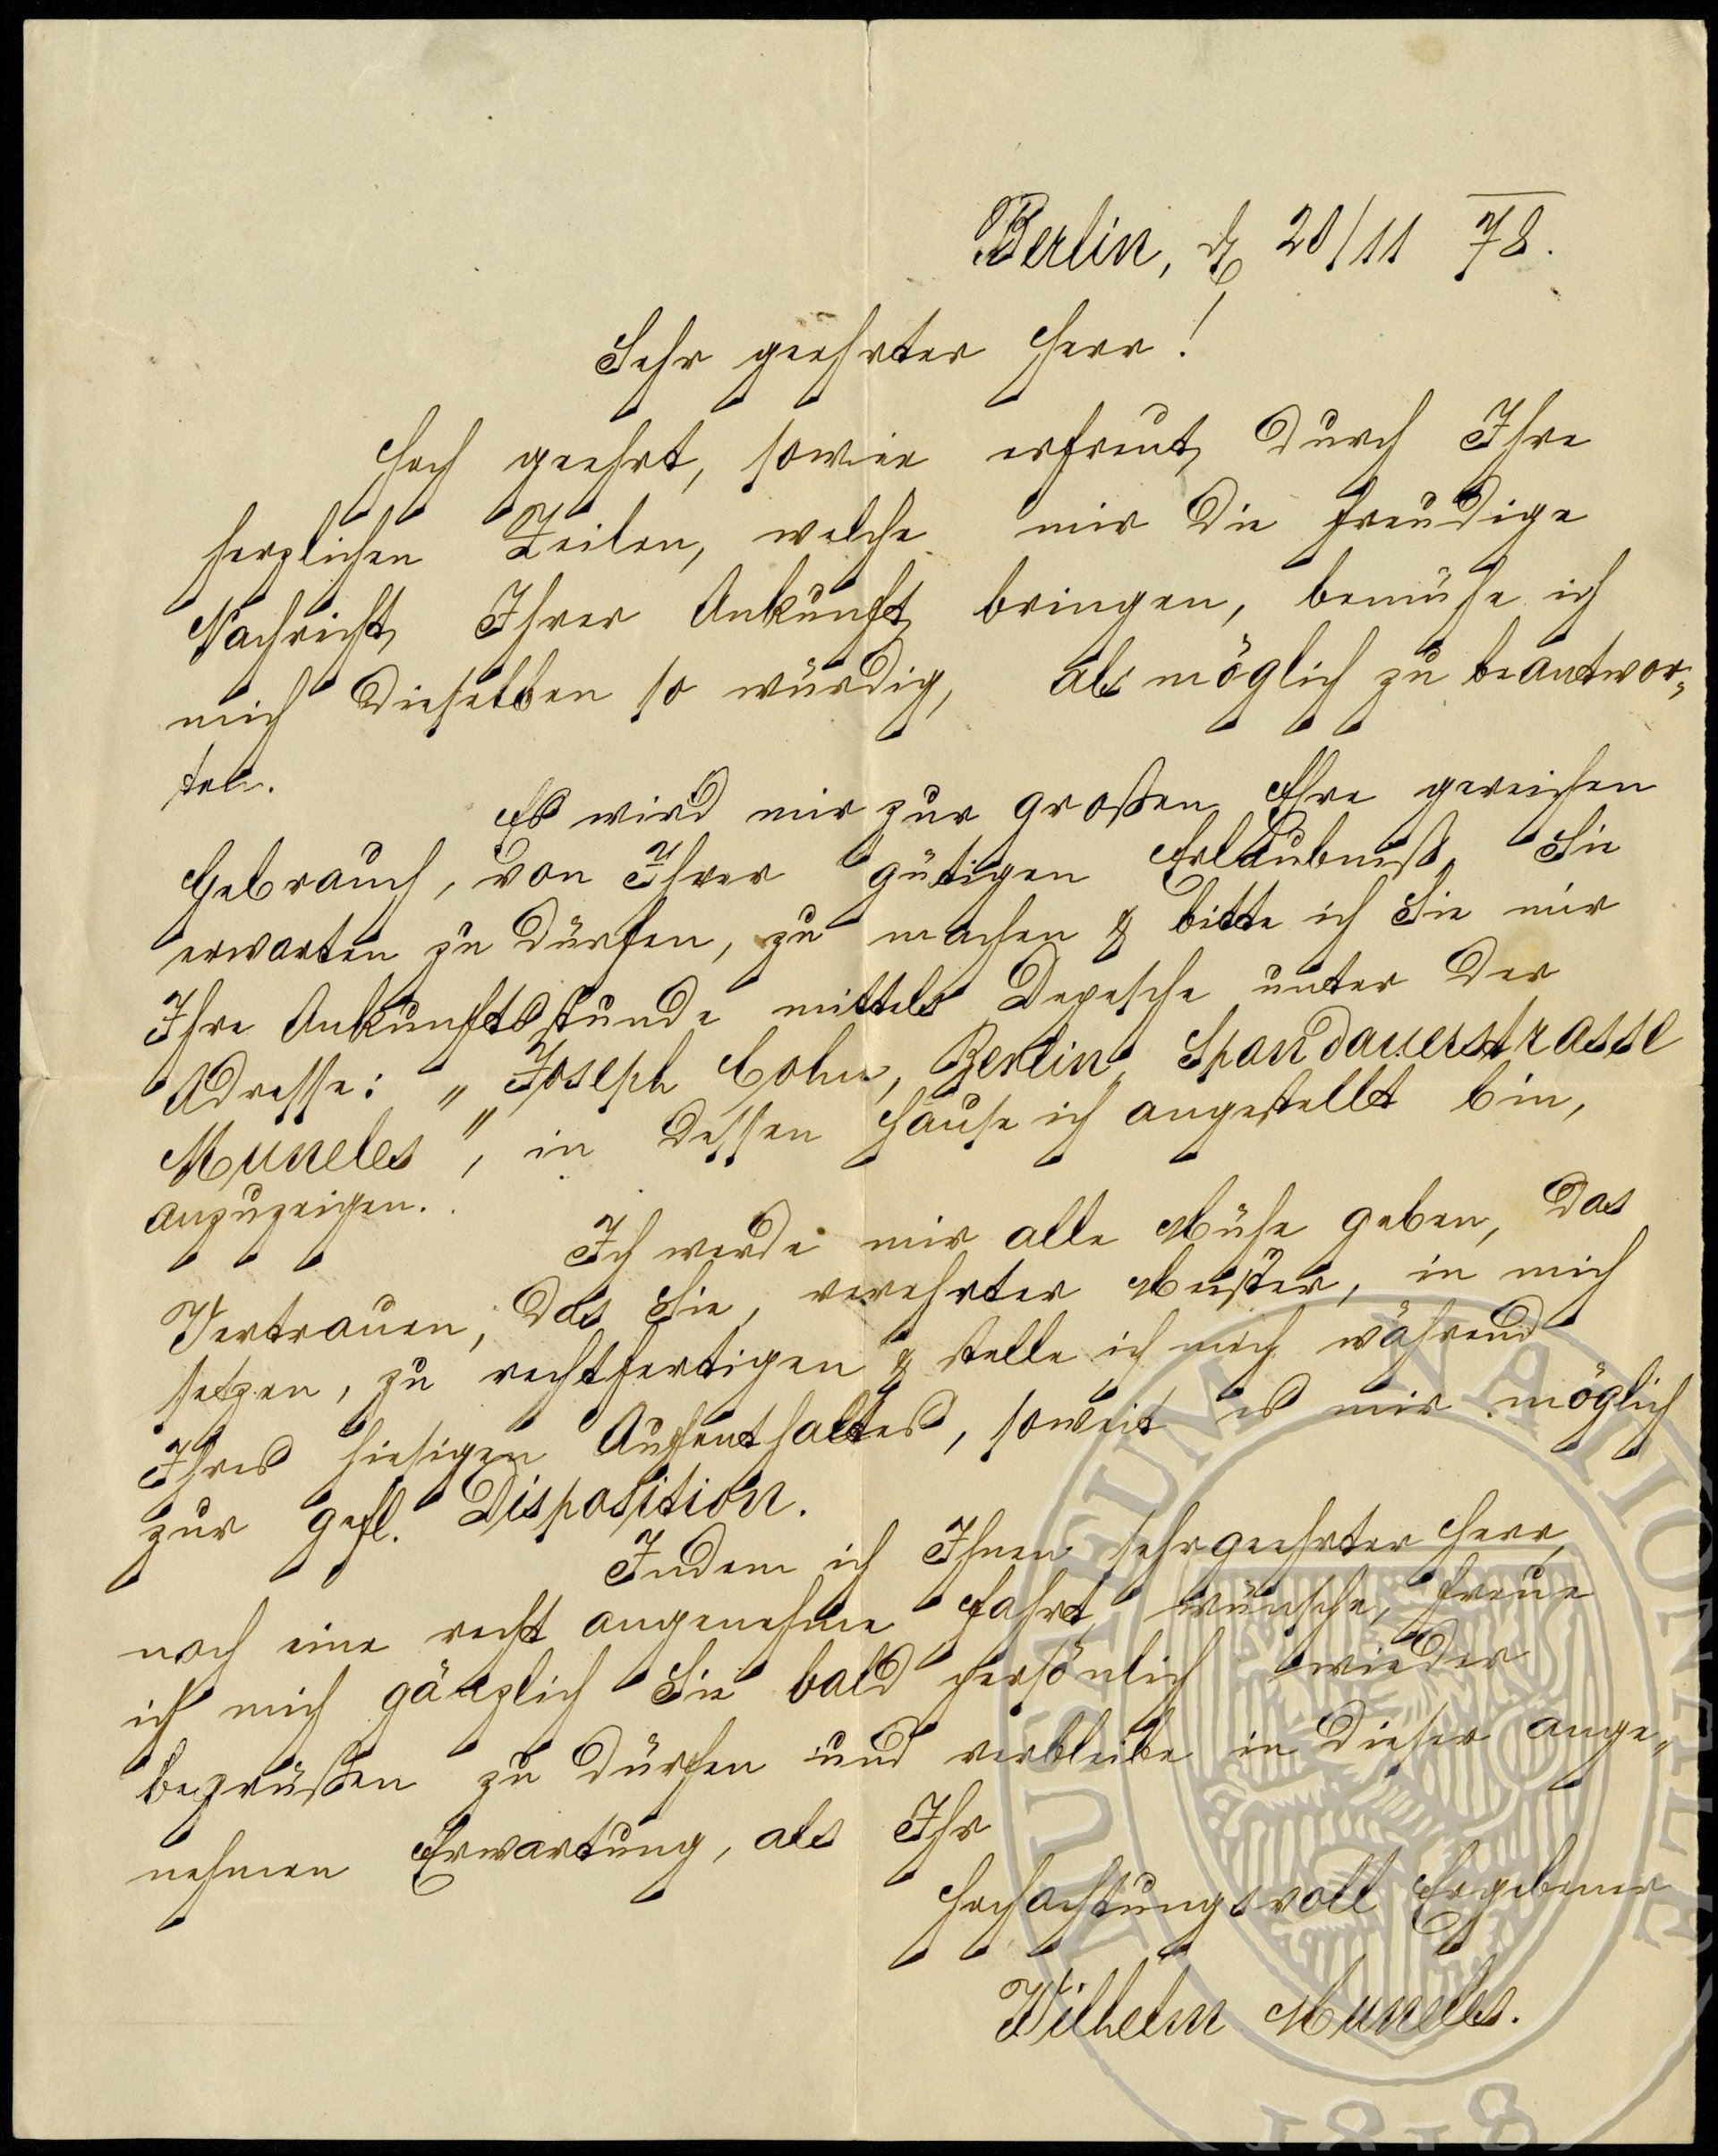 Berlin, d 20/11 78.
Sehr geehrter Herr!
Hoch geehrt, sowie erfreut, durch Ihre
herzlichen Zeilen, welche mir die freudige
Nachricht, Ihrer Ankunft, bringen, bemühe ich
mich dieselben so würdig, als möglich zu beantwor„
ten.
Es wird mir zur großen Ehre gereichen
Gebrauch, von Ihrer gütigen Erlaubniß, Sie
erwarten zu dürfen, zu machen & bitte ich Sie mir
Ihre Ankunftsstunde mittels Depesche unter der
Adresse: „Joseph Cohn, Berlin, Spandauerstrasse
Muneles", in dessen Hause ich angestellt bin,
anzuzeigen.
Ich werde mir alle Mühe geben, das
Vertrauen, das Sie, verehrter Meister, in mich
setzen, zu rechtfertigen & stelle ich mich während
Ihres hiesigen Aufenthaltes, soweit es mir möglich
zur gefl. Disposition.
Indem ich Ihnen sehrgeehrter Herr,
noch eine recht angenehme Fahrt, wünsche, freue
ich mich gänzlich Sie bald persönlich wieder
begrüßen zu dürfen und verbleibe in dieser ange„
nehmen Erwartung, als Ihr
Hochachtungsvoll Ergebener
Wilhelm Muneles.
MUSAEUM NATIONALE
1818